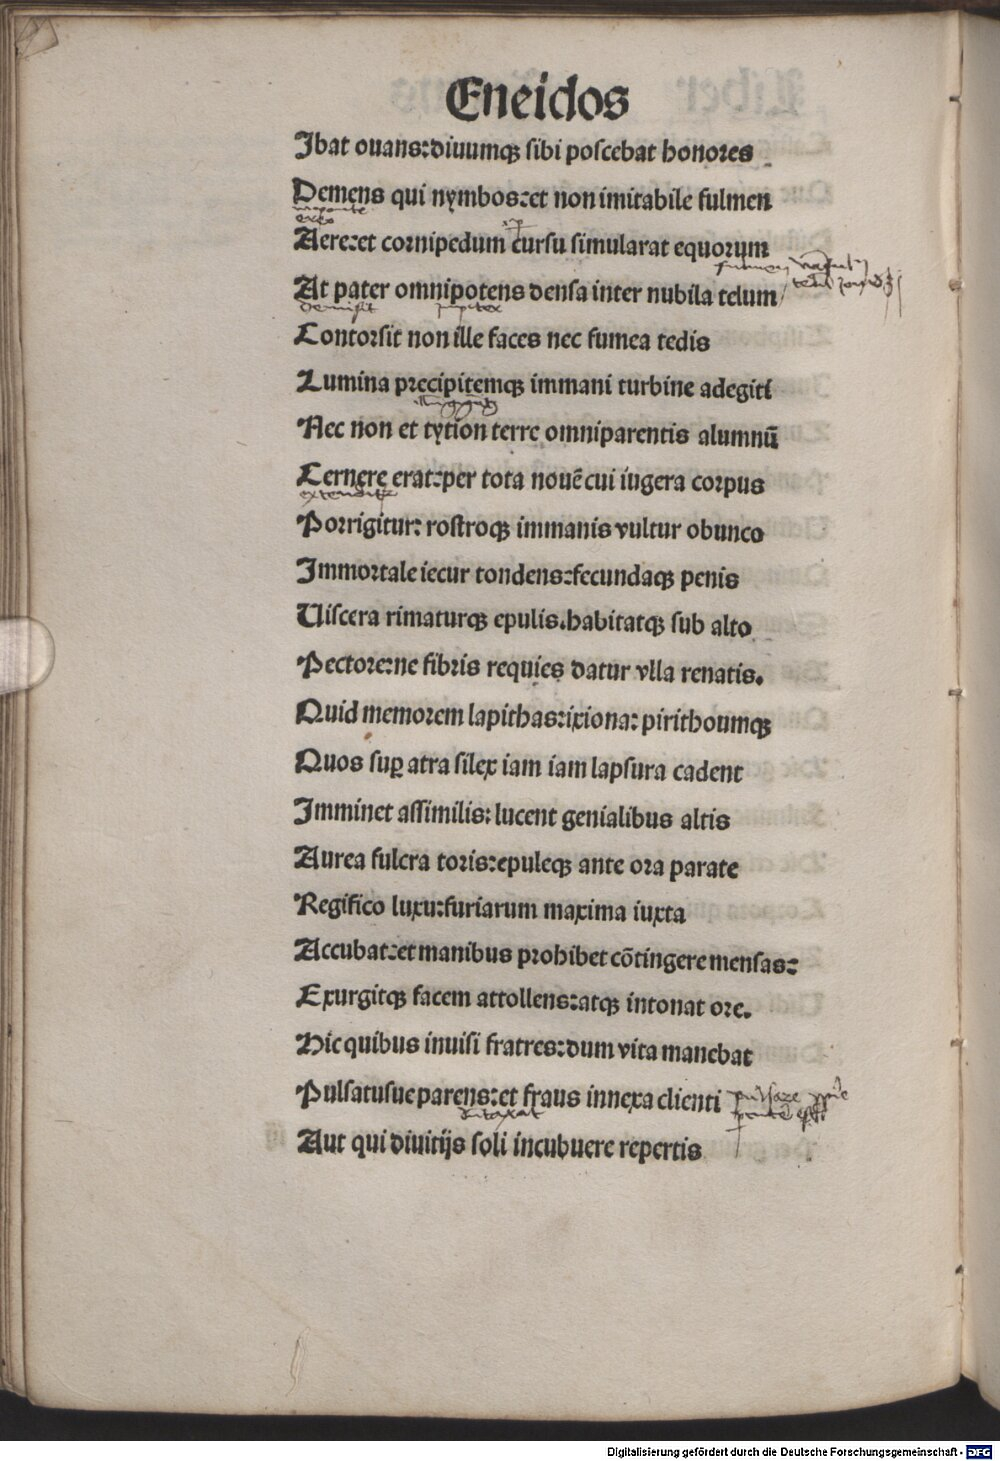 Eneidos
Ibat ouans:diuumqꝫ sibi poscebat honores
Demens qui nymbos:et non imitabile fulmen
Aere:et cornipedum cursu simularat equorum
At pater omnipotens densa inter nubila telum
Contorsit non ille faces nec fumea tedis
Lumina precipitemqꝫ immani turbine adegit
Nec non et tytion terre omniparentis alumnū
Cernere erat:per tota nouē cui iugera corpus
extenditur
Porrigitur: rostroqꝫ immanis vultur obunco
Immortale iecur tondens:fecundaqꝫ penis
Uiscera rimaturqꝫ epulis.habitatqꝫ sub alto
Pectore:ne fibris requies datur vlla renatis.
Quid memorem lapithas:ixiona: pirithoumqꝫ
Quos suꝑ atra silex iam iam lapsura cadent
Imminet assimilis: lucent genialibus altis
Aurea fulcra toris:epuleqꝫ ante ora parate
Regifico luxu:furiarum maxima iuxta
Accubat:et manibus prohibet cōtingere mensas:
Exurgitqꝫ facem attollens:atqꝫ intonat ore.
Hic quibus inuisi fratres:dum vita manebat
Pulsatusue parens:et fraus innexa clienti
Aut qui diuitijs soli incubuere repertis
Digitalisierung gefördert durch die Deutsche Forschungsgemeinschaft - DFG